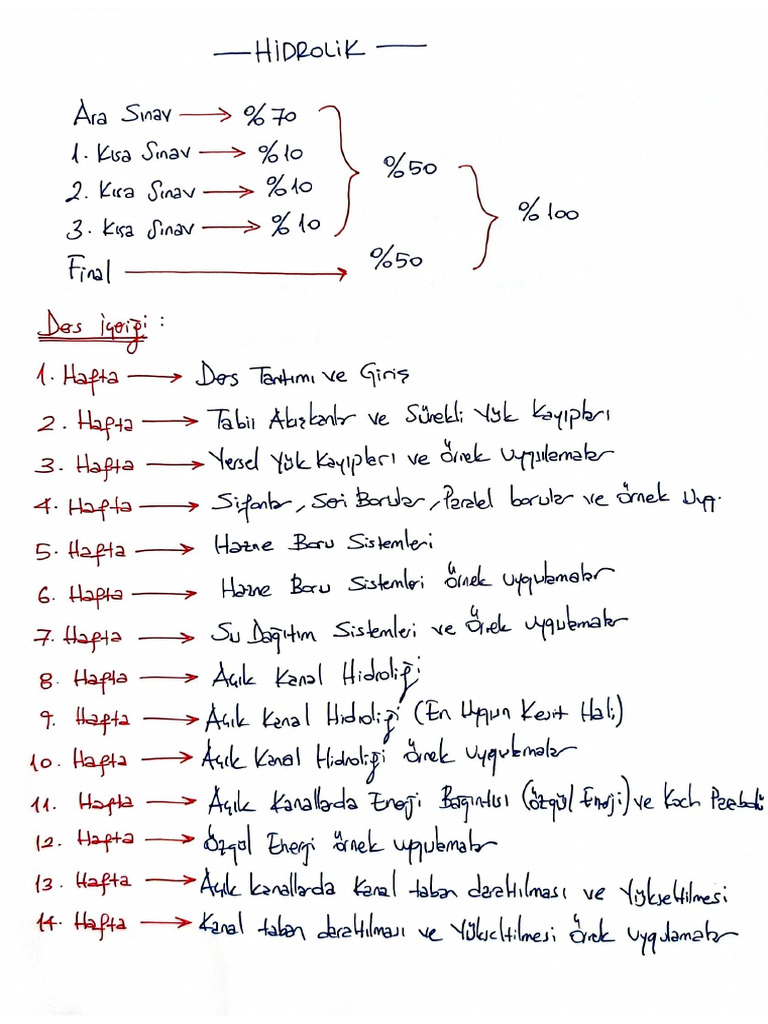 — HİDROLİK —
Ara Sınav → %70
1. Kısa Sınav → %10
%50
2. Kısa Sınav → %10
%100
3. Kısa Sınav → %10
Final → %50
Ders İçeriği :
1. Hafta → Ders Tanıtımı ve Giriş
2. Hafta → Tabii Akışkanlar ve Sürekli Yük Kayıpları
3. Hafta → Yersel Yük Kayıpları ve Örnek Uygulamalar
4. Hafta → Sifonlar, Seri Borular, Paralel borular ve Örnek Uyg.
5. Hafta → Hazne Boru Sistemleri
6. Hafta → Hazne Boru Sistemleri Örnek Uygulamalar
7. Hafta → Su Dağıtım Sistemleri ve Örnek uygulamalar
8. Hafta → Açık Kanal Hidroliği
9. Hafta → Açık Kanal Hidroliği (En Uygun Kesit Hali)
10. Hafta → Açık Kanal Hidroliği Örnek uygulamalar
11. Hafta → Açık Kanallarda Enerji Bağıntısı (Özgül Enerji) ve Koch Parabolü
12. Hafta → Özgül Energi Örnek uygulamalar
13. Hafta → Açık kanallarda Kanal taban daraltılması ve Yükseltilmesi
14. Hafta → Kanal taban daraltılması ve Yükseltilmesi Örnek Uygulamalar